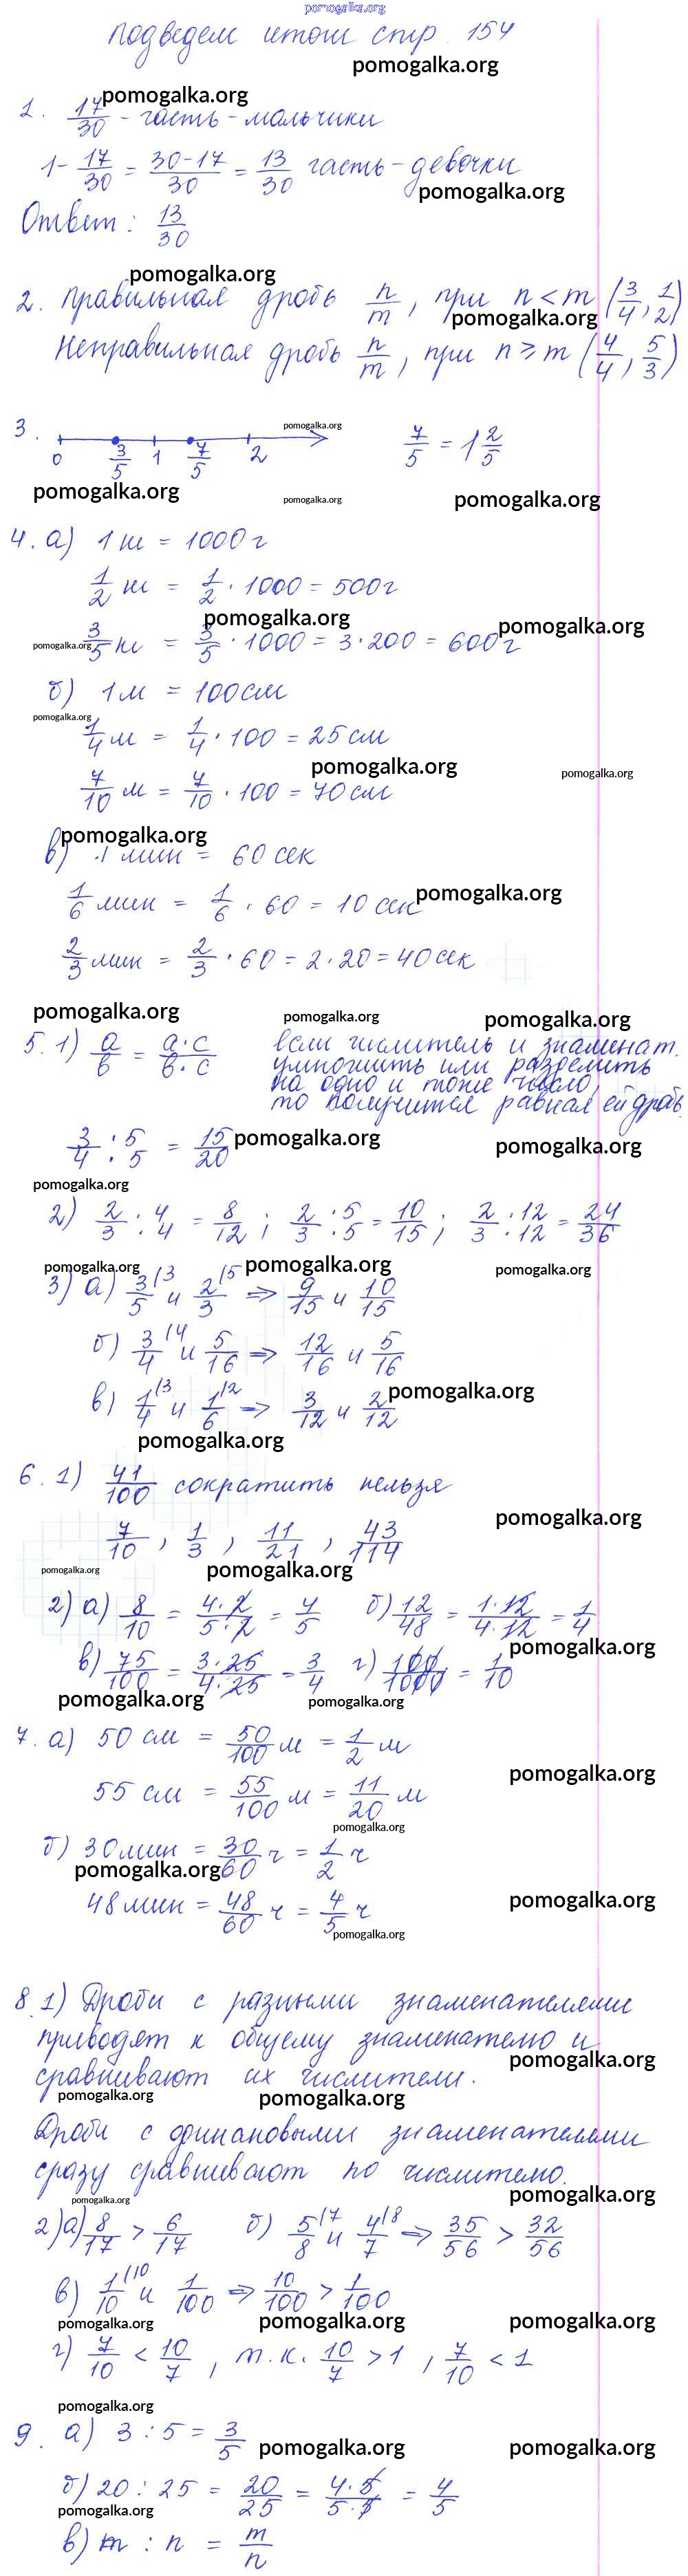 pomogalka.org
Подведем итоги стр. 154
pomogalka.org
pomogalka.org
1. 17/30 - часть - мальчики
1 - 17/30 = (30-17)/30 = 13/30 часть - девочки
pomogalka.org
Ответ: 13/30
pomogalka.org
2. Правильная дробь n/m, при n < m (3/4, 1/2)
pomogalka.org
Неправильная дробь n/m, при n ≥ m (4/4, 5/3)
pomogalka.org
3. 0 3/5 1 7/5 2 7/5 = 1 2/5
pomogalka.org pomogalka.org pomogalka.org
4. а) 1 кг = 1000 г
1/2 кг = 1/2 · 1000 = 500 г
pomogalka.org pomogalka.org
pomogalka.org 3/5 кг = 3/5 · 1000 = 3 · 200 = 600 г
б) 1 м = 100 см
pomogalka.org
1/4 м = 1/4 · 100 = 25 см
pomogalka.org pomogalka.org
7/10 м = 7/10 · 100 = 70 см
pomogalka.org
в) 1 мин = 60 сек
pomogalka.org
1/6 мин = 1/6 · 60 = 10 сек
2/3 мин = 2/3 · 60 = 2 · 20 = 40 сек
pomogalka.org pomogalka.org pomogalka.org
5. 1) a/b = a·c/b·c если числитель и знаменат.
умножить или разделить
на одно и тоже число,
то получится равная ей дробь
3/4 · 5/5 = 15/20 pomogalka.org pomogalka.org
pomogalka.org
2) 2/3 · 4/4 = 8/12; 2/3 · 5/5 = 10/15; 2/3 · 12/12 = 24/36
pomogalka.org pomogalka.org pomogalka.org
3) а) 3/5 \3 и 2/3 \5 ⇒ 9/15 и 10/15
б) 3/4 \4 и 5/16 ⇒ 12/16 и 5/16
в) 1/4 \3 и 1/6 \2 ⇒ 3/12 и 2/12 pomogalka.org
pomogalka.org
6. 1) 41/100 сократить нельзя
pomogalka.org
7/10, 1/3, 11/21, 43/114
pomogalka.org pomogalka.org
2) а) 8/10 = 4·2/5·2 = 4/5 б) 12/48 = 1·12/4·12 = 1/4
pomogalka.org
в) 75/100 = 3·25/4·25 = 3/4 г) 100/1000 = 1/10
pomogalka.org pomogalka.org
7. а) 50 см = 50/100 м = 1/2 м
pomogalka.org
55 см = 55/100 м = 11/20 м
pomogalka.org
б) 30 мин = 30/60 ч = 1/2 ч
pomogalka.org
48 мин = 48/60 ч = 4/5 ч pomogalka.org
pomogalka.org
8. 1) Дроби с разными знаменателями
приводят к общему знаменателю и
pomogalka.org
сравнивают их числители.
pomogalka.org pomogalka.org
Дроби с одинановыми знаменателями
сразу сравнивают по числителю.
pomogalka.org pomogalka.org
2) а) 8/17 > 6/17 б) 5/8 \7 и 4/7 \8 ⇒ 35/56 > 32/56
в) 1/10 \10 и 1/100 ⇒ 10/100 > 1/100
pomogalka.org pomogalka.org pomogalka.org
г) 7/10 < 10/7, т.к. 10/7 > 1, 7/10 < 1
pomogalka.org
9. а) 3 : 5 = 3/5
pomogalka.org pomogalka.org
б) 20 : 25 = 20/25 = 4·5/5·5 = 4/5
pomogalka.org
в) m : n = m/n